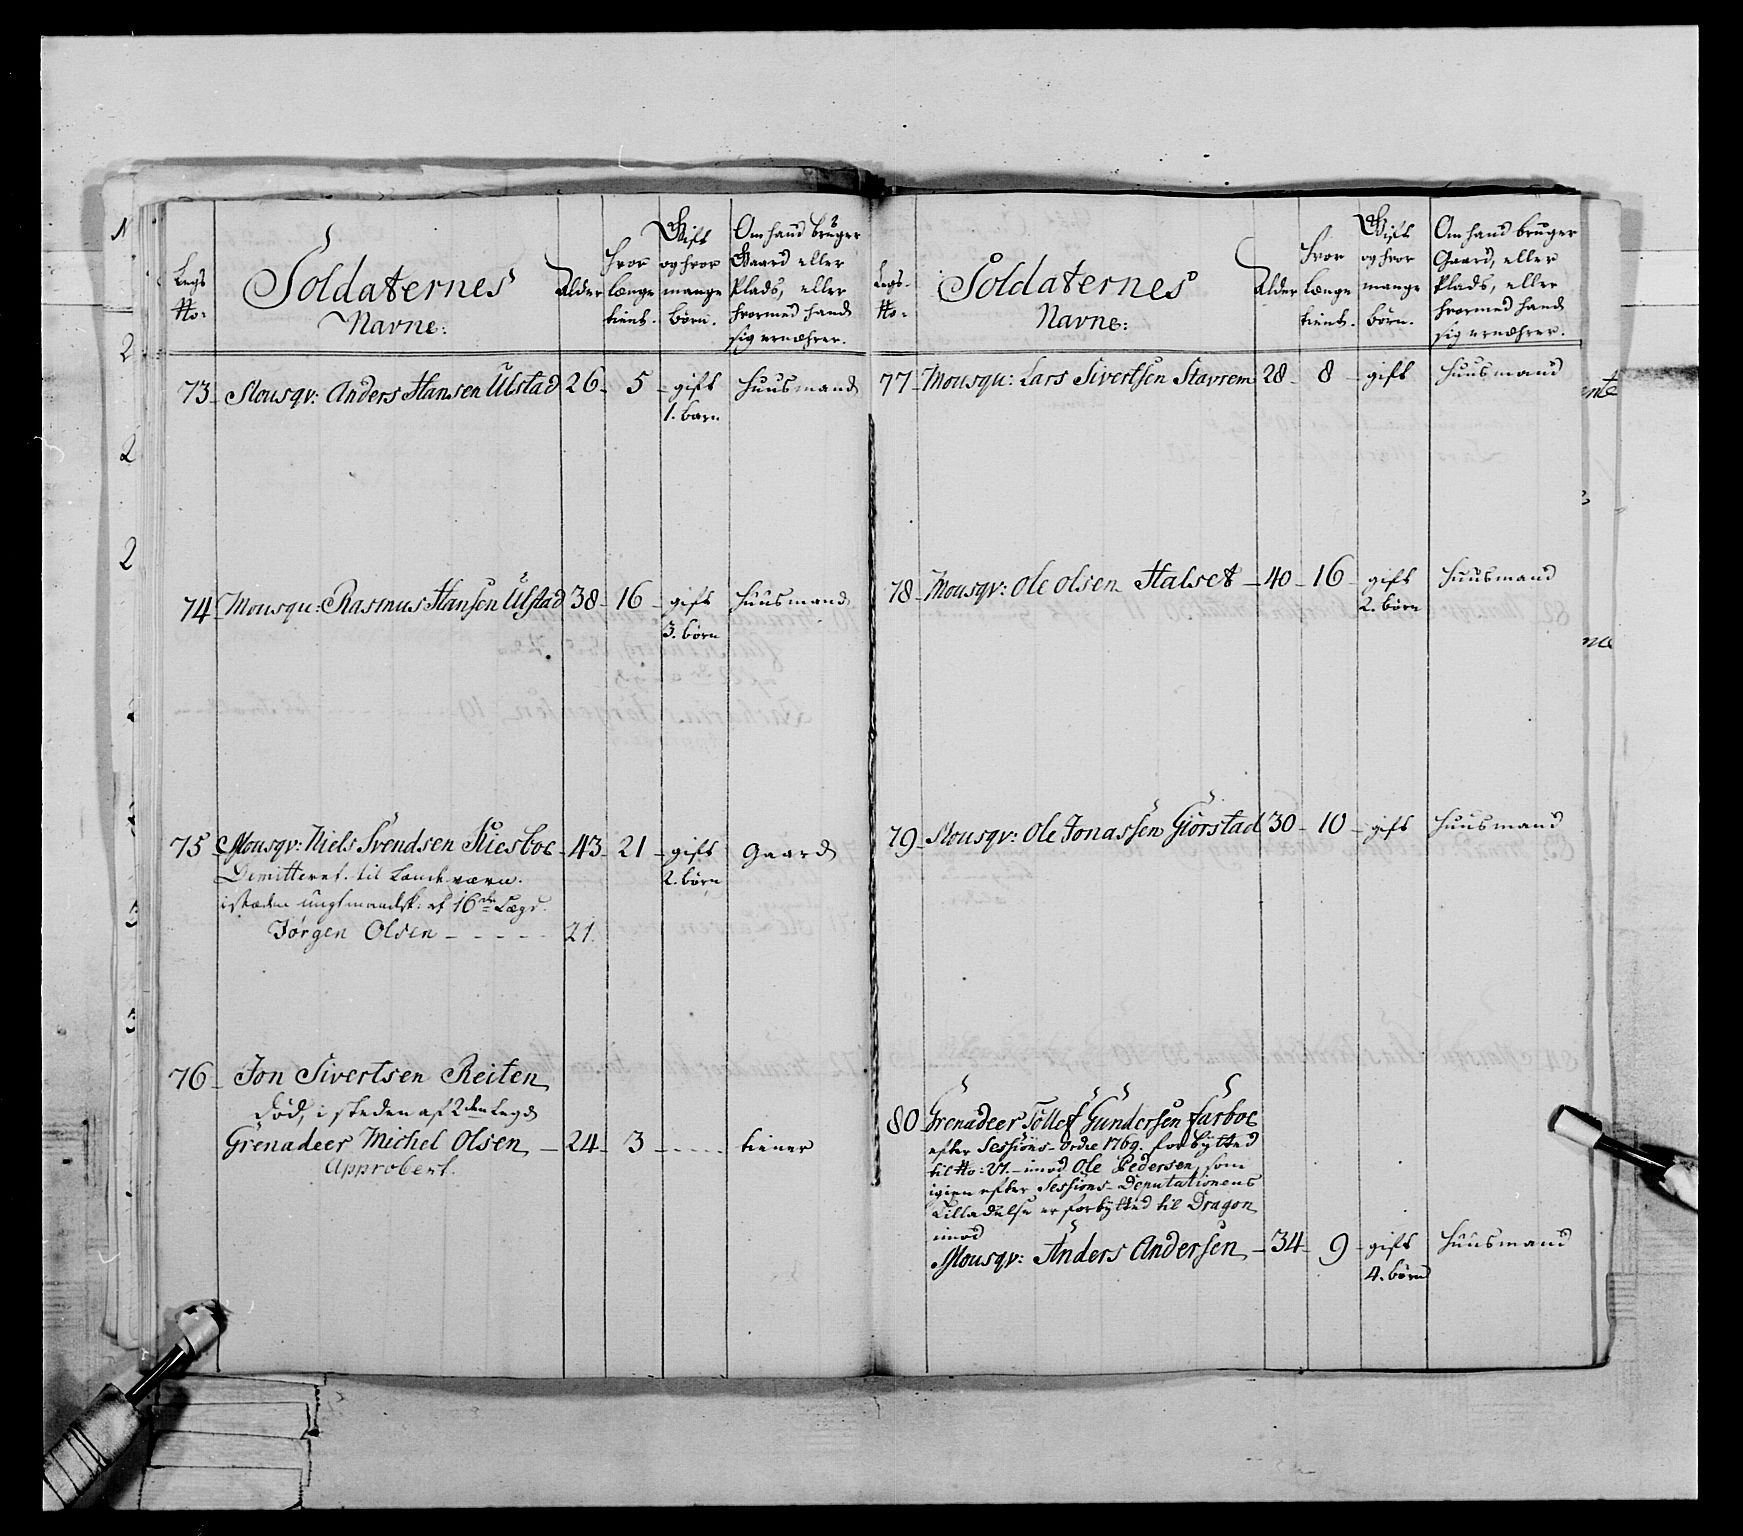 Legs No:
Soldaternes Navne:
Alder
Hvor længe tient.
Gift og hvor mange børn.
Om hand bruger Gaard eller Plads, eller hvormed hand sig ernæhrer.
73 Mousqv: Anders Hansen Ulstad 26 5 gift Huusmand
1. barn
74 Mousqu: Rasmus Hansen Ulstad 38 16 gift Huusmand
3. børn
75 Mousqv: Niels Svendsen Kiesboe 43 21 gift Gaard
Dimitteret til Landværn. 2. børn
istæden ungt mandsk: af 16de Lægd.
Jørgen Olsen - - - - - 21.
76 Jon Sivertsen Reiten
død, i steden af 2den Legd
Grenadeer Michel Olsen 24 3 - - - - tiener
Approbert.
Legs- No:
Soldaternes Navne:
Alder
Hvor længe tient.
Gift og hvor mange børn.
Om hand bruger Gaard, eller Plads, eller hvormed hand sig ernæhrer.
77 Mousqu: Lars Sivertsen Stavrem 28 8 gift Huusmand
78 Mousqv: Ole Olsen Halset 40 16 gift Huusmand
2. børn
79 Mousqv: Ole Jonassen Giørstad 30 10 gift Huusmand
80 Grenadeer Tollef Gundersen Farboe
efter Sessions-Ordre 1769. forbytted
til No: 21. imod Ole Pedersen, som
igien efter Sessions-Deputationens
Tilladelse er forbytted til Dragon
imod
Mousqv: Anders Andersen 34 9 gift Huusmand
4. børn